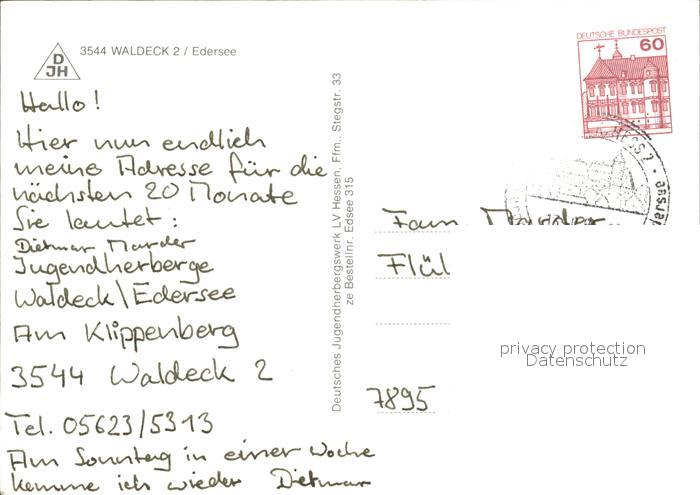 DJH
3544 WALDECK 2 / Edersee
Hallo!
Hier nun endlich
meine Adresse für die
nächsten 20 Monate
Sie lautet:
Dietmar Marder
Jugendherberge
Waldeck\Edersee
Am Klippenberg
3544 Waldeck 2
Tel. 05623/5313
Am Sonntag in einer Woche
komme ich wieder Dietmar
Deutsches Jugendherbergswerk LV Hessen, Ffm., Stegstr. 33
ze Bestellnr. Edsee 315
DEUTSCHE BUNDESPOST
60
Fam. Marder
Flül
7895
privacy protection
Datenschutz